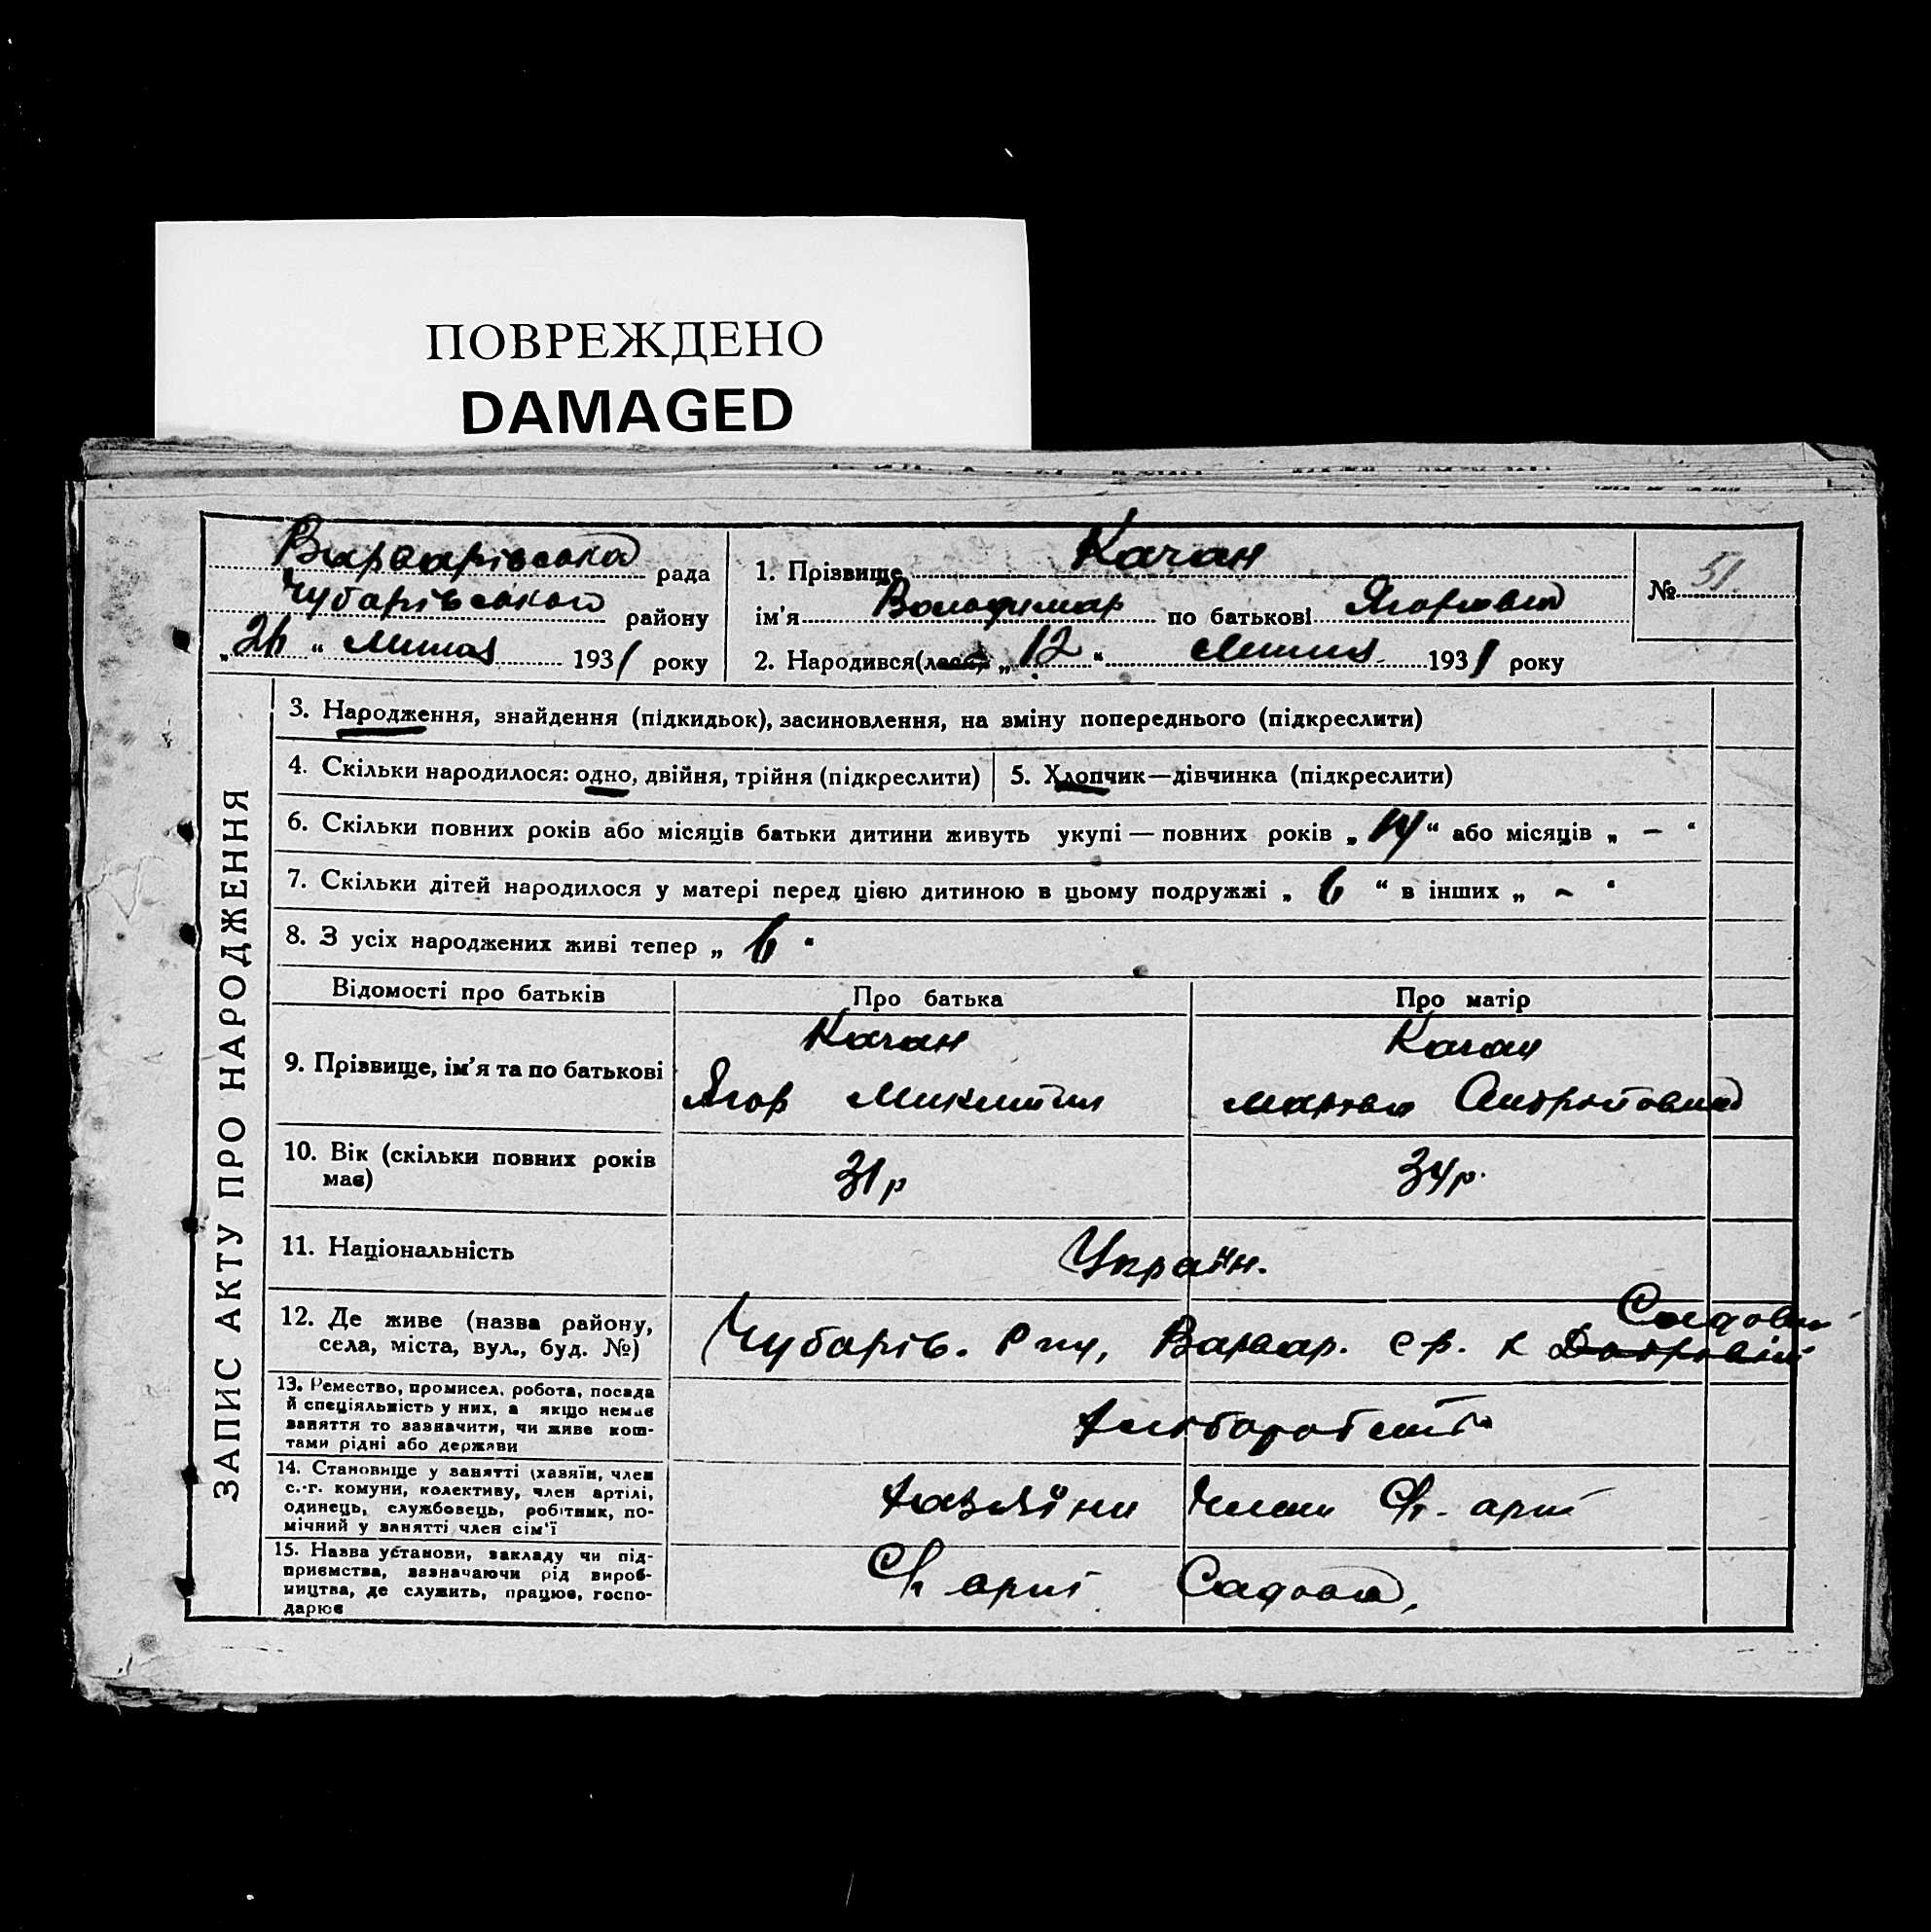 ПОВРЕЖДЕНО
DAMAGED
Варварівська рада
Чубарівського району
"24" 1931 року
1. Прізвище Качан
ім'я Володимир по батькові Ягорович
2. Народився(лась) "12" 1931 року
№ 51
ЗАПИС АКТУ ПРО НАРОДЖЕННЯ
3. Народження, знайдення (підкидьок), засиновлення, на зміну попереднього (підкреслити)
4. Скільки народилося: одно, двійня, трійня (підкреслити)
5. Хлопчик—дівчинка (підкреслити)
6. Скільки повних років або місяців батьки дитини живуть укупі — повних років „ 14 “ або місяців „ – “
7. Скільки дітей народилося у матері перед цією дитиною в цьому подружжі „ 6 “ в інших „ – “
8. З усіх народжених живі тепер „ 6 “
Відомості про батьків
Про батька
Про матір
9. Прізвище, ім'я та по батькові
Качан
Ягор Микитич
Качан
10. Вік (скільки повних років
має)
31 р
34 р.
11. Національність
Україн.
12. Де живе (назва району,
села, міста, вул., буд. №)
Чубарів. Варвар. с р. к
13. Ремество, промисел, робота, посада
й спеціяльність у них, а якщо немає
заняття то зазначити, чи живе кош-
тами рідні або держави
Хліборобств
14. Становище у занятті (хазяїн, член
с.-г. комуни, колективу, член артілі,
одинець, службовець, робітник, по-
мічний у занятті член сім'ї
Хазяїни члени с/г. арті
15. Назва установи, закладу чи під-
приємства, зазначаючи рід вироб-
ництва, де служить, працює, госпо-
дарює
с/г арті Садова